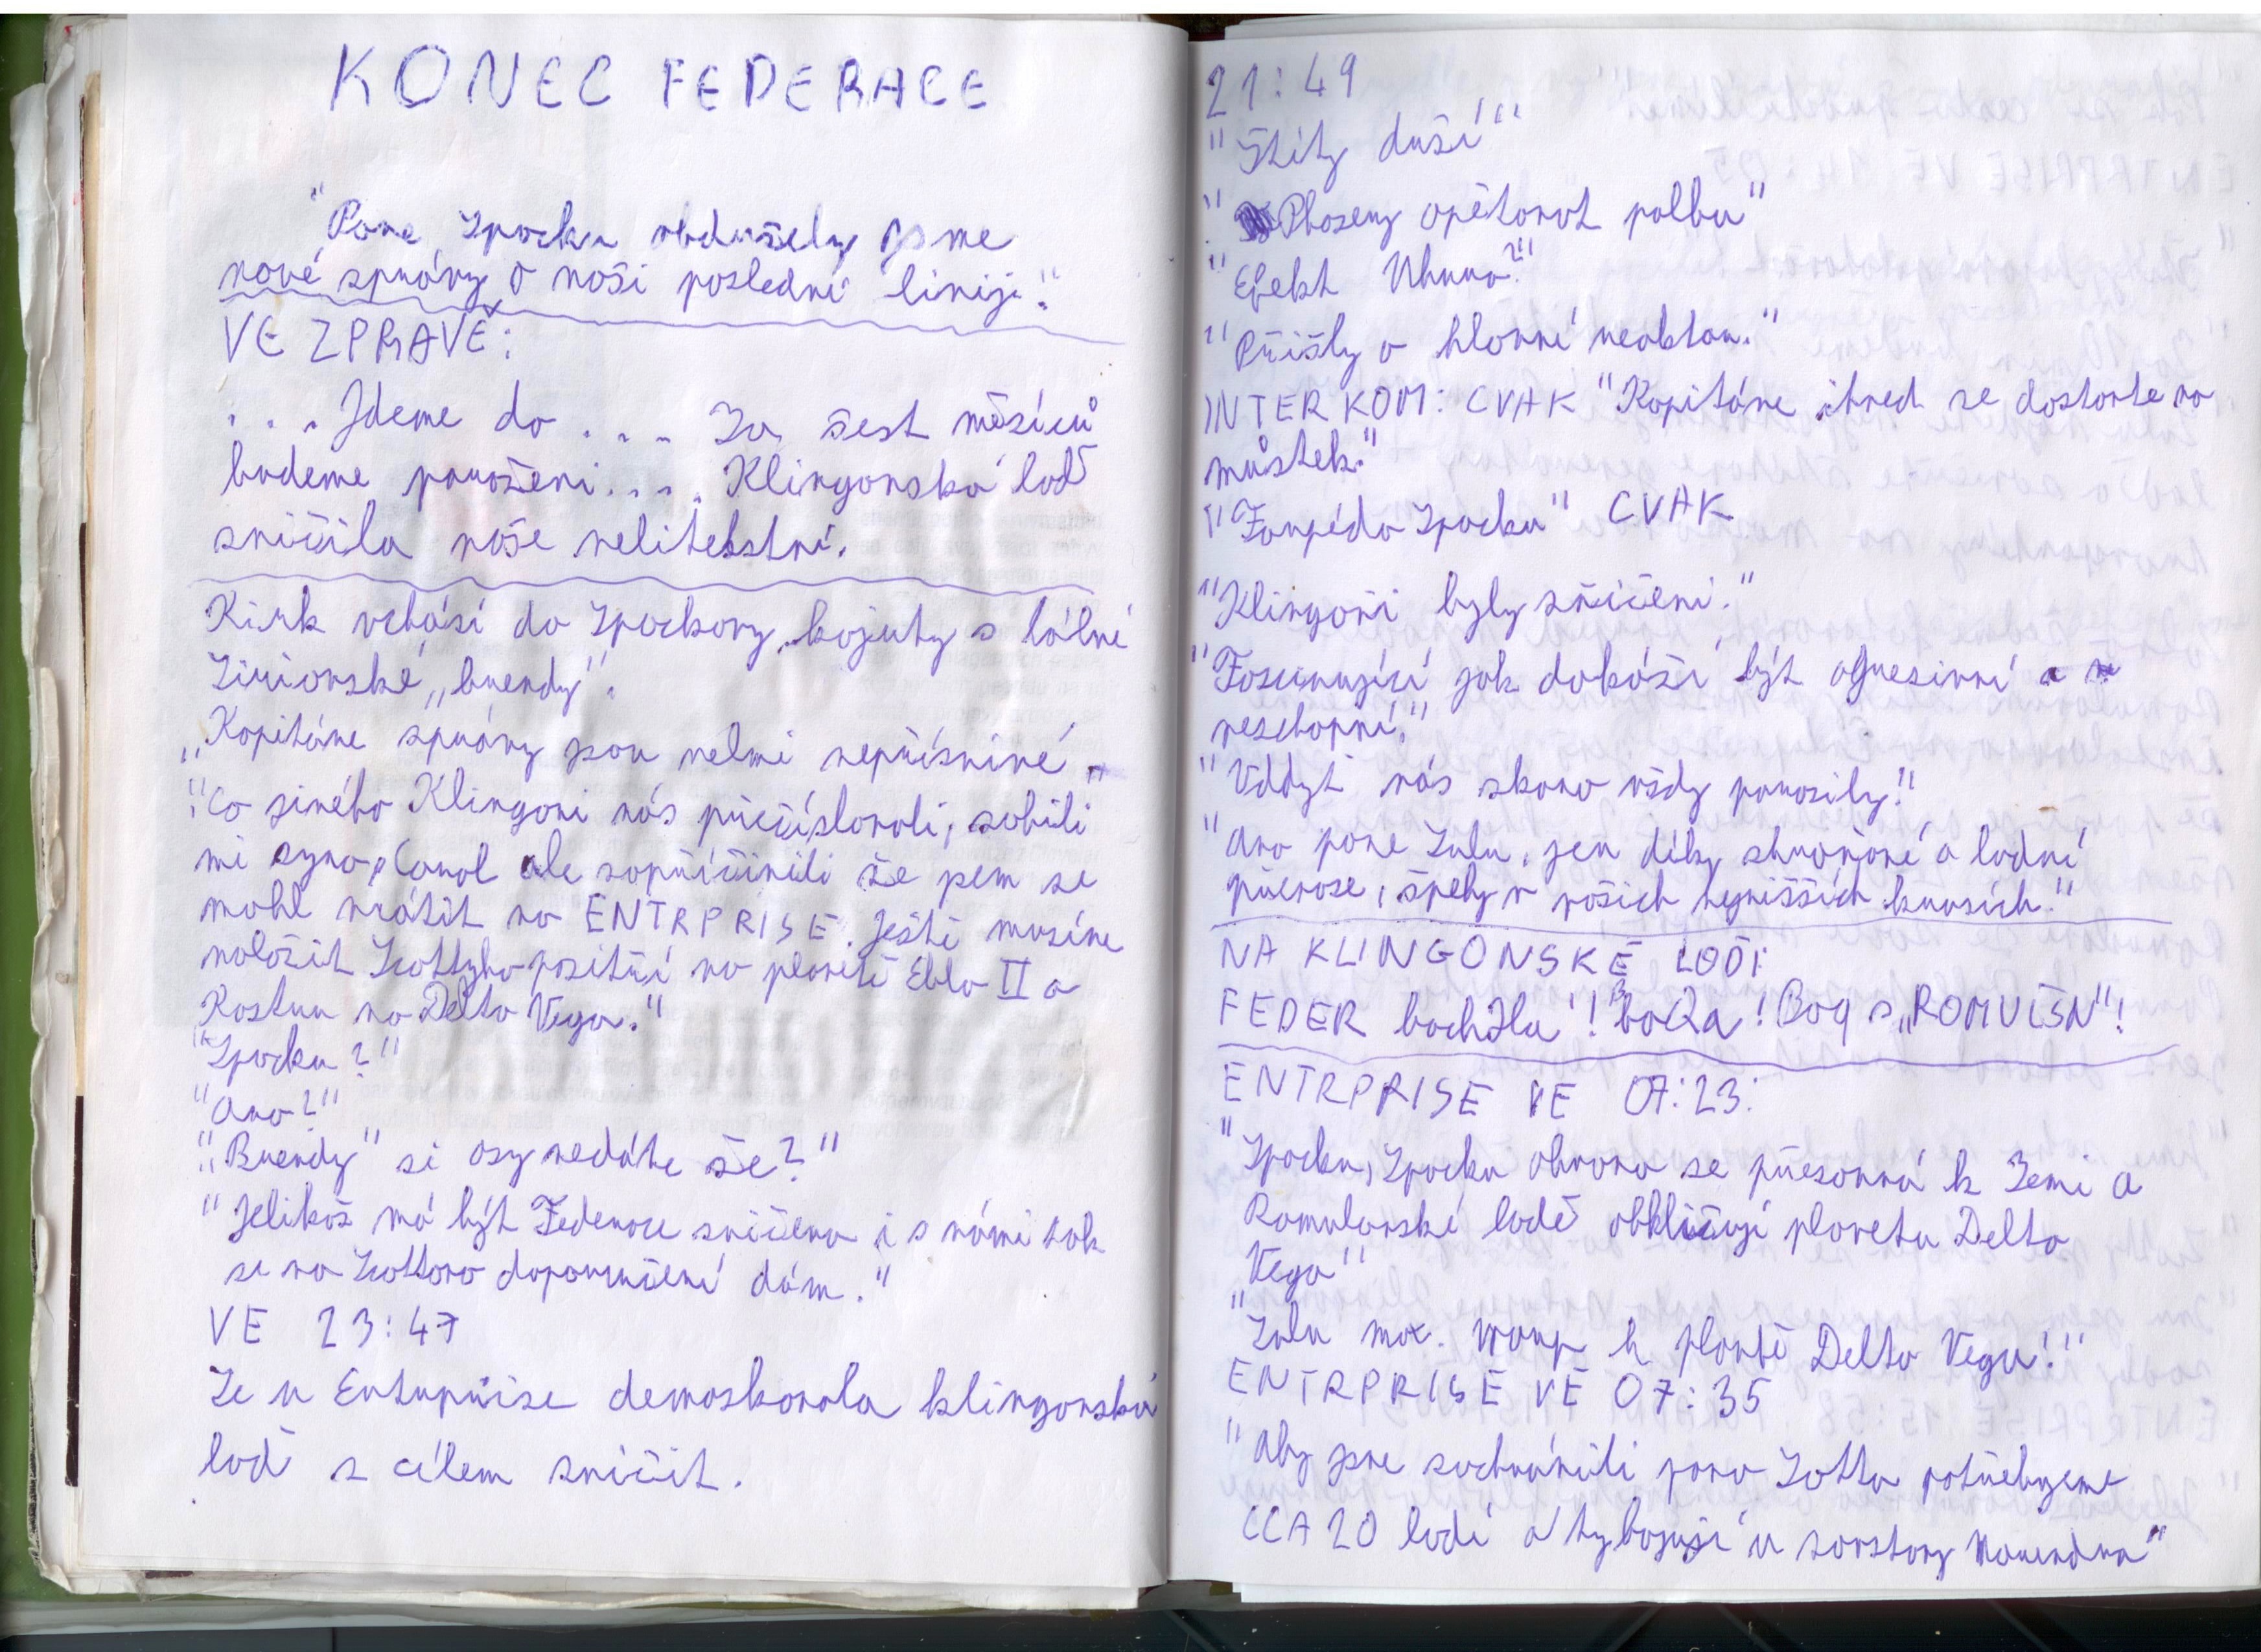 KONEC FEDERACE
"Pane Spocku obdrželi jsme
nové zprávy o naši poslední liniji."
VE ZPRAVĚ:
. . . Jdeme do . . . . Za šest měsíců
budeme poraženi. . . . Klingonská loď
zničila naše velitelství.
Kirk vchází do Spockovy kajuty s láhví
Siriorské „brendy".
„Kapitáne zprávy jsou velmi nepříznivé."
"Co jiného Klingoni nás přečíslovali, zabili
mi syna, Carol ale zapříčinili že jsem se
mohl vrátit na ENTRPRISE. Ještě musíme
naložit Scottyho pozitří na planetě Elba II a
Kostru na Delta Vega."
"Spocku?"
"Ano?"
"Brendy" si asy nedáte že?"
"Jelikož má být Federace zničena i s námi tak
se na Scottovo doporučení dám."
VE 23:47
Se u Enterprise demaskovala klingonská
loď s cílem zničit.
21:49
"Štíty duší"
"Phasery opětovat palbu"
"Efekt Uhuro?"
"Přišly o hlavní reaktor."
INTERKOM: CVAK "Kapitáne ihned se dostavte na
můstek."
"Torpéda Spocku" CVAK
"Klingoňi byly zničeni."
"Fascinující jak dokáží být agresivní a
neschopní."
"Vddyť nás skoro vždy porazily!"
"Ano pane Sulu, jen díky zhrožoné a lodní
převoze, špehy v našich nejvišších kruzích."
NA KLINGONSKÉ LODI:
FEDER bochIla'! baQa! Boq s „ROMVLSN"!
ENTRPRISE VE 07:23:
"Spocku, Spocku obrana se přesouvá k Zemi a
Romulanské lodě obkličují planetu Delta
Vega"
"Sulu max. warp k plantě Delta Vega!"
ENTRPRISE VE 07:35
"Aby jsme zachránili pana Scotta potřebujeme
CCA 20 lodí a ty bojují u soustavy